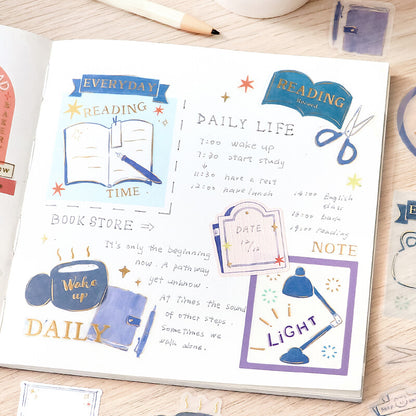 EVERYDAY
READING
TIME
READING
Record
DAILY LIFE
7:00 wake up
7:30 start study
11:30 have a rest
12:00 have lunch
14:00 English
17:00 back
19:00 reading
BOOK STORE ⇒
It's only the beginning
now. A pathway
yet unknown.
At Times the sound
of other steps.
Sometimes we
walk alone.
Wake
up
DAILY
DATE
NOTE
LIGHT